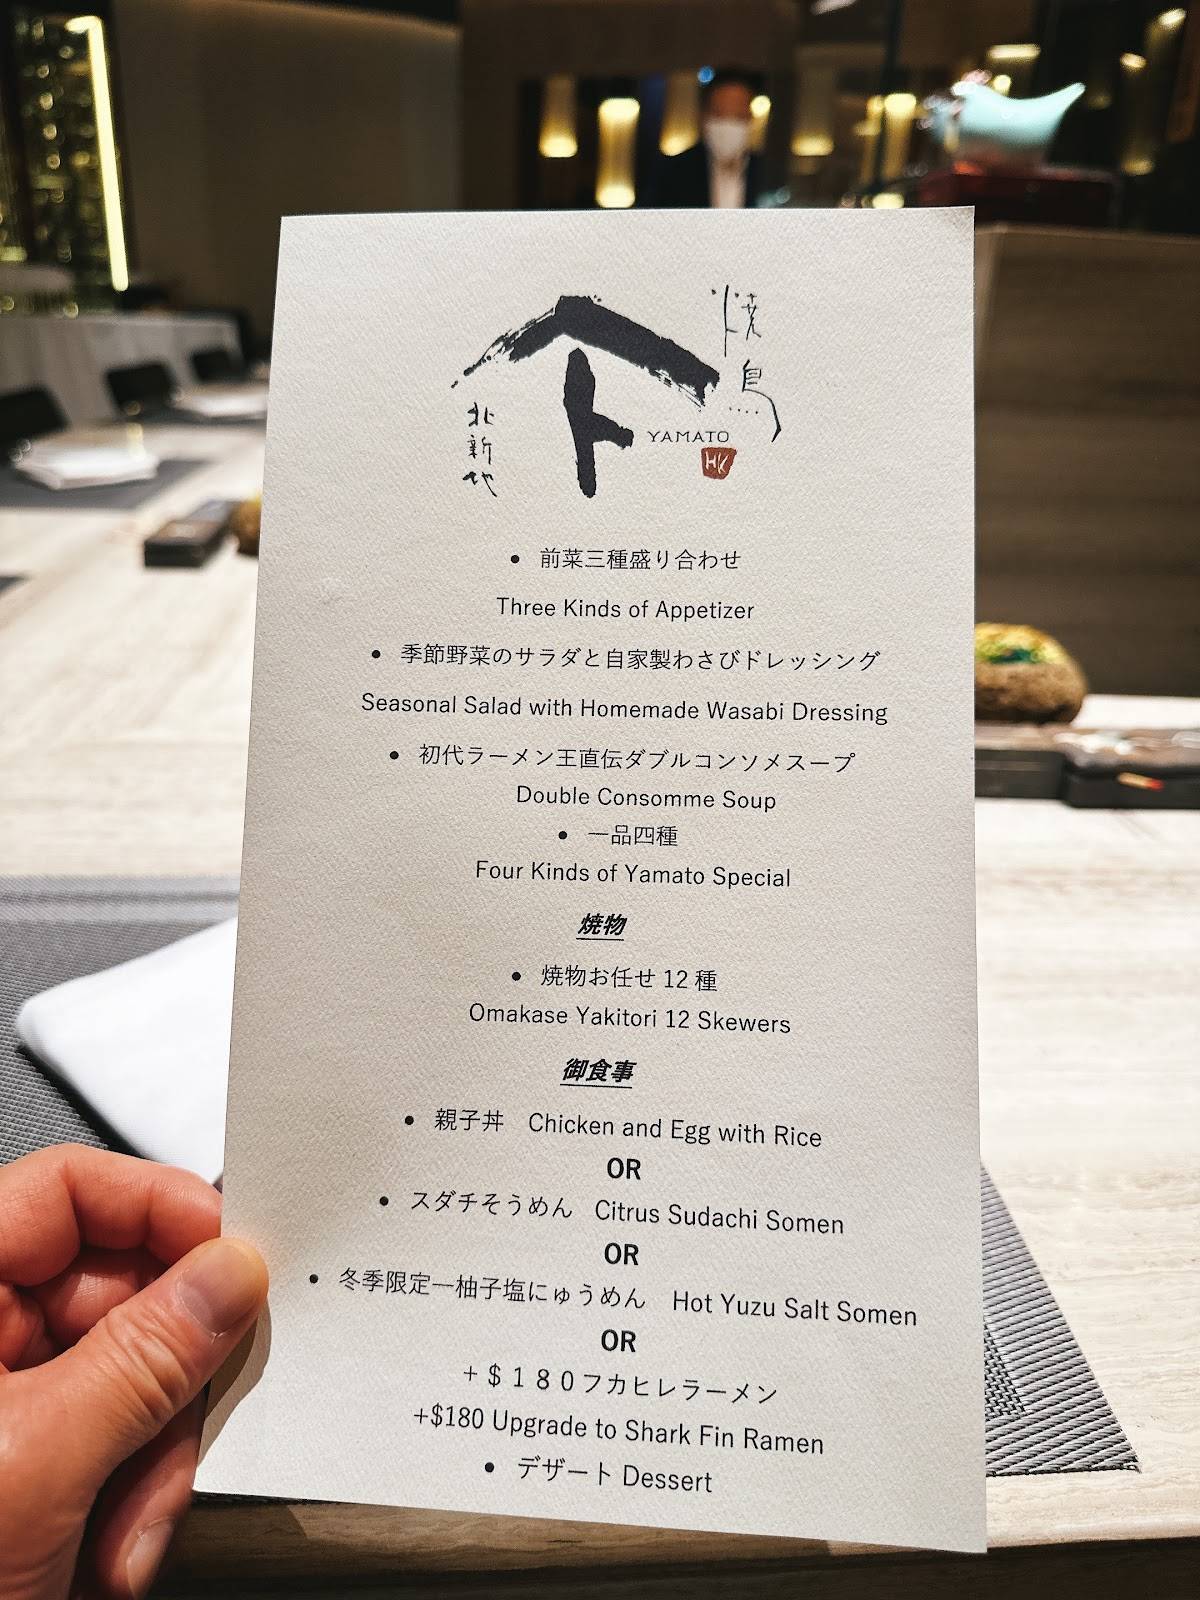 焼鳥
YAMATO
HK
北新地
• 前菜三種盛り合わせ
Three Kinds of Appetizer
• 季節野菜のサラダと自家製わさびドレッシング
Seasonal Salad with Homemade Wasabi Dressing
• 初代ラーメン王直伝ダブルコンソメスープ
Double Consomme Soup
• 一品四種
Four Kinds of Yamato Special
焼物
• 焼物お任せ 12 種
Omakase Yakitori 12 Skewers
御食事
• 親子丼 Chicken and Egg with Rice
OR
• スダチそうめん Citrus Sudachi Somen
OR
• 冬季限定—柚子塩にゅうめん Hot Yuzu Salt Somen
OR
+＄１８０フカヒレラーメン
+$180 Upgrade to Shark Fin Ramen
• デザート Dessert